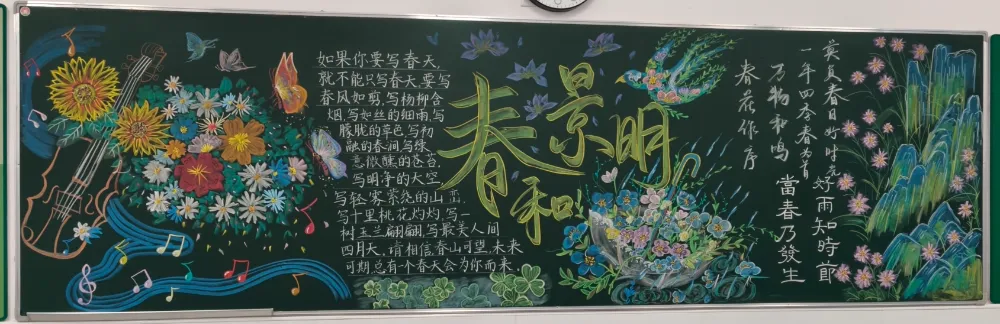 如果你要写春天,
就不能只写春天,要写
春风如剪,写杨柳含
烟,写如丝的细雨,写
朦胧的草色,写初
融的春涧,写绿
意微醺的苍苔,
写明净的天空
写轻雾萦绕的山峦
写十里桃花灼灼,写一
树玉兰翩翩,写最美人间
四月天,请相信春山可望,未来
可期,总有一个春天会为你而来
春和景明
莫负春日好时光
一年四季春为首
万物和鸣
春花作序
好雨知時節
當春乃發生